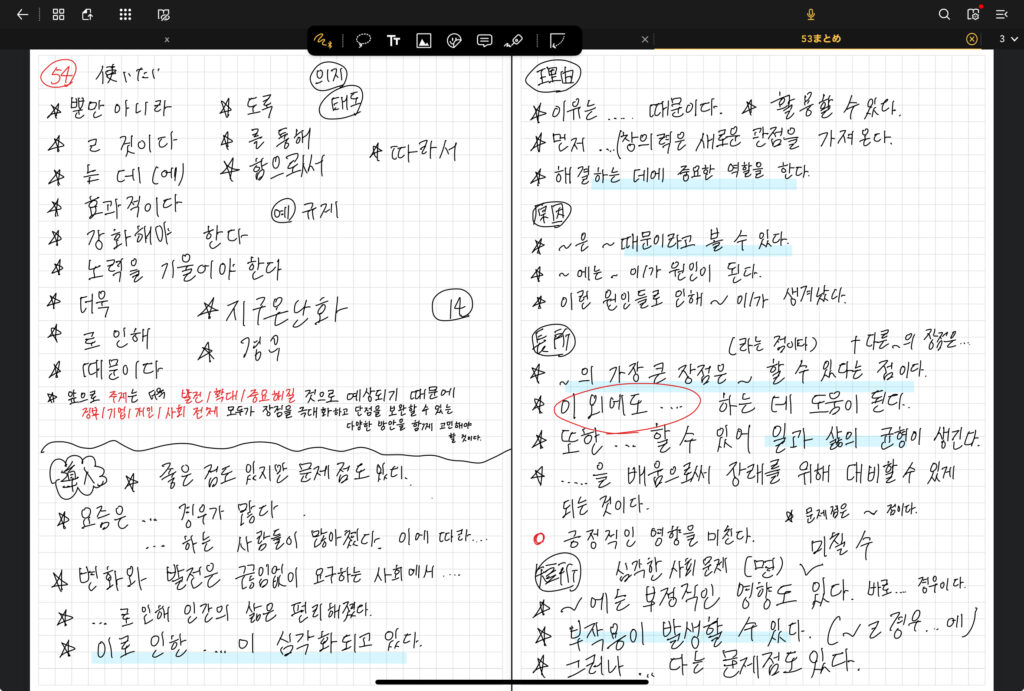 53まとめ
3
54 使いたい
의지
태도
☆ 뿐만 아니라
☆ 도록
☆ ㄹ 것이다
☆ 를 통해
☆ 는 데 (에)
☆ 함으로써
☆ 따라서
☆ 효과적이다
예 규제
☆ 강화해야 한다
☆ 노력을 기울여야 한다
☆ 더욱
☆ 지구온난화
14
☆ 로 인해
☆ 때문이다
☆ 앞으로 주제는 더욱 발전/확대/중요해질 것으로 예상되기 때문에
정부/기업/개인/사회 전체 모두가 장점을 극대화하고 단점을 보완할 수 있는
다양한 방안을 함께 고민해야
할 것이다.
導入
☆ 좋은 점도 있지만 문제점도 있다.
☆ 요즘은 … 경우가 많다
… 하는 사람들이 많아졌다. 이에 따라….
☆ 변화와 발전은 끊임없이 요구하는 사회에서 ….
☆ … 로 인해 인간의 삶은 편리해졌다.
☆ 이로 인한 …. 이 심각화되고 있다.
理由
☆ 이유는 …. 때문이다.
☆ 활용할 수 있다.
☆ 먼저 …(창의력은 새로운 관점을 가져온다.
☆ 해결하는 데에 중요한 역할을 한다.
原因
☆ ~은 ~때문이라고 볼 수 있다.
☆ ~에는 ~ 이/가 원인이 된다.
☆ 이런 원인들로 인해 ~ 이/가 생겨났다.
長所
(라는 점이다)
+ 다른 ~의 장점은…
☆ ~의 가장 큰 장점은 ~ 할 수 있다는 점이다.
☆ 이 외에도 …. 하는 데 도움이 된다.
☆ 또한 … 할 수 있어 일과 삶의 균형이 생긴다.
☆ …..을 배움으로써 장래를 위해 대비할 수 있게
되는 것이다.
☆ 문제점은 ~ 점이다.
○ 긍정적인 영향을 미친다.
미칠 수
短所
심각한 사회 문제 (면)
☆ ~에는 부정적인 영향도 있다. 바로… 경우이다.
☆ 부작용이 발생할 수 있다. (~ㄹ 경우…에)
☆ 그러나 … 다는 문제점도 있다.